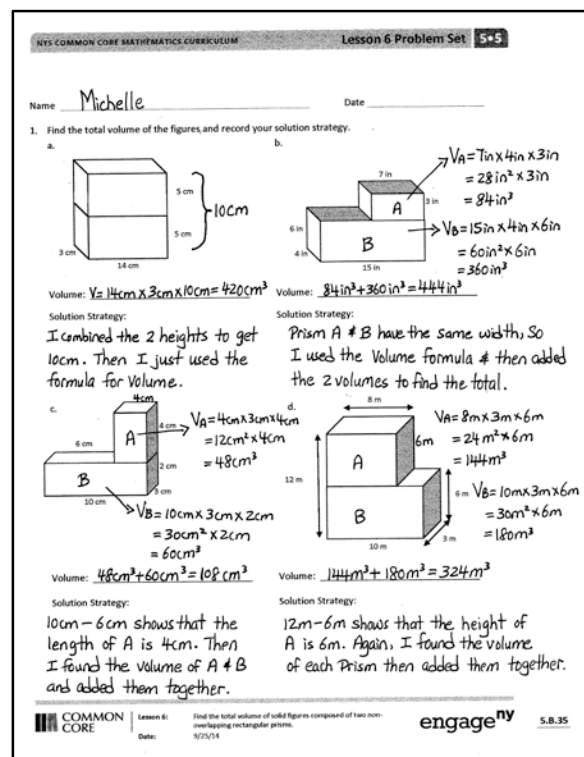 NYS COMMON CORE MATHEMATICS CURRICULUM Lesson 6 Problem Set 5•5
Name Michelle Date
1. Find the total volume of the figures and record your solution strategy.
a.
5 cm
5 cm
10cm
3 cm
14 cm
Volume: V= 14cm x 3cm x 10cm = 420cm³
Solution Strategy:
I combined the 2 heights to get
10cm. Then I just used the
formula for volume.
b.
7 in
3 in
A
6 in
B
4 in
15 in
VA= 7in x 4in x 3in
= 28in² x 3in
= 84in³
VB= 15in x 4in x 6in
= 60in² x 6in
= 360in³
Volume: 84in³ + 360in³ = 444in³
Solution Strategy:
Prism A & B have the same width, so
I used the volume formula & then added
the 2 volumes to find the total.
c.
4cm
4 cm
A
6 cm
2 cm
B
3 cm
10 cm
VA= 4cm x 3cm x 4cm
= 12cm² x 4cm
= 48cm³
VB= 10cm x 3cm x 2cm
= 30cm² x 2cm
= 60cm³
Volume: 48cm³ + 60cm³ = 108cm³
Solution Strategy:
10cm - 6cm shows that the
length of A is 4cm. Then
I found the volume of A & B
and added them together.
d.
8 m
6m
A
12 m
6 m
B
3 m
10 m
VA= 8m x 3m x 6m
= 24m² x 6m
= 144m³
VB= 10m x 3m x 6m
= 30m² x 6m
= 180m³
Volume: 144m³ + 180m³ = 324m³
Solution Strategy:
12m - 6m shows that the height of
A is 6m. Again, I found the volume
of each Prism then added them together.
COMMON
CORE
Lesson 6: Find the total volume of solid figures composed of two non-
overlapping rectangular prisms.
Date: 9/25/14
engage ny
5.B.35